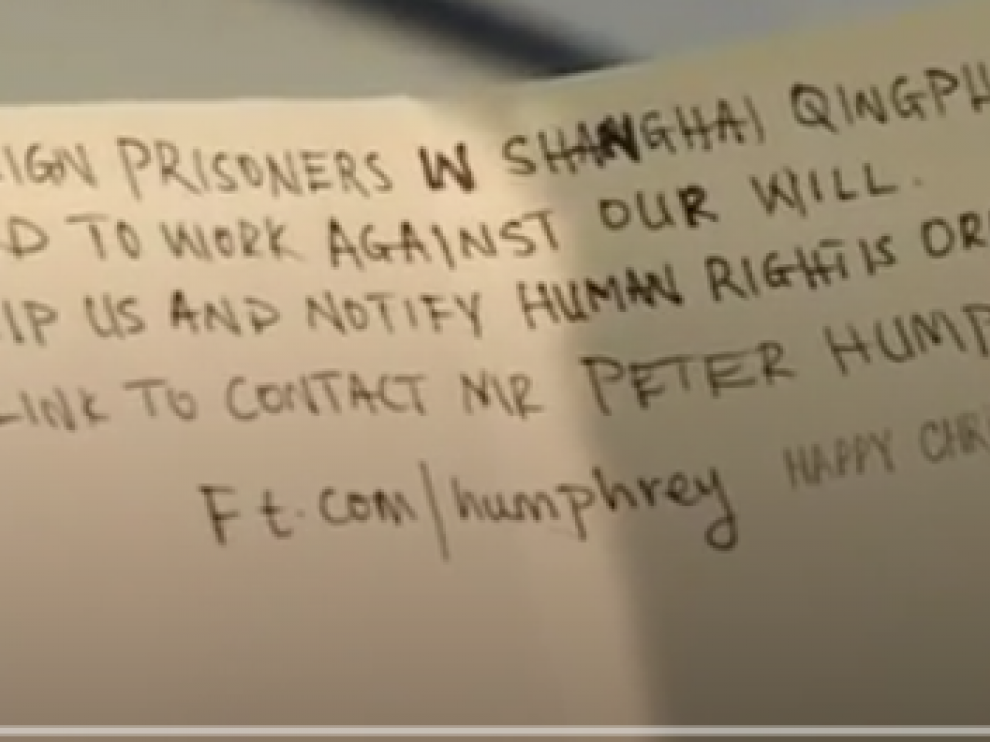 IGN PRISONERS IN SHANGHAI QINGPU
D TO WORK AGAINST OUR WILL.
LP US AND NOTIFY HUMAN RIGHTS OR
LINK TO CONTACT MR PETER HUMP
HAPPY CHRI
Ft.com/humphrey